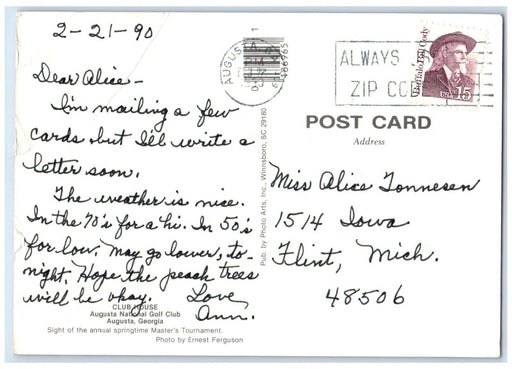 2-21-90
Dear Alice-
I'm mailing a few
cards but I'll write a
letter soon.
The weather is nice.
In the 70's for a hi. In 50's
for low. May go lower, to-
night. Hope the peach trees
will be okay. Love,
Ann.
CLUB HOUSE
Augusta National Golf Club
Augusta, Georgia
Sight of the annual springtime Master's Tournament.
Photo by Ernest Ferguson
Pub. by Photo Arts, Inc., Winnsboro, SC 29180
AUGUSTA
ALWAYS
ZIP CO
Buffalo Bill Cody
USA 15
POST CARD
Address
Miss Alice Tonnesen
1514 Iowa
Flint, Mich.
48506